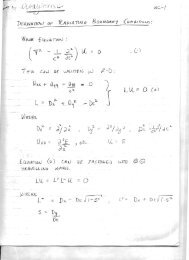 DERIVATION OF RADIATING BOUNDARY CONDITIONS:
WAVE EQUATION:
(∇² - 1/c² ∂²/∂t²) U = 0 (1)
THIS CAN BE WRITTEN IN 2-D:
Uxx + Uyy - = 0
L = Dx² + Dy² - Dt²
} LU = 0 (2)
WHERE
Dx² = ∂²/∂x², Dy² = ∂²/∂y²,
EQUATION (2) CAN BE FACTORED INTO
TRAVELLING WAVES.
LU = L⁺L⁻U = 0
WHERE
L⁻ = Dx - Dt√1-S², L⁺ = Dx + Dt√1-S²
S = Dy/Dt